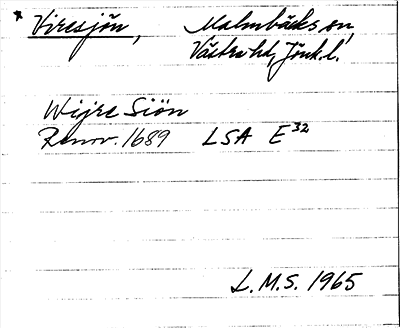 * Viresjön, Malmbäcks sn,
Västra hd, Jönk.l.
Wijre Siön
Renov. 1689 LSA E32
L.M.S. 1965